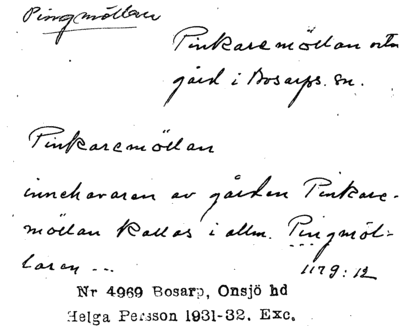 Pingmöllan
Pinkaremöllan
gård i Bosarps. sn.
Pinkaremöllan
innehavaren av gården Pinkare-
möllan kallas i allm. Pingmöl-
laren ...
1179:12
Nr 4969 Bosarp, Onsjö hd
Helga Persson 1931-32. Exc.